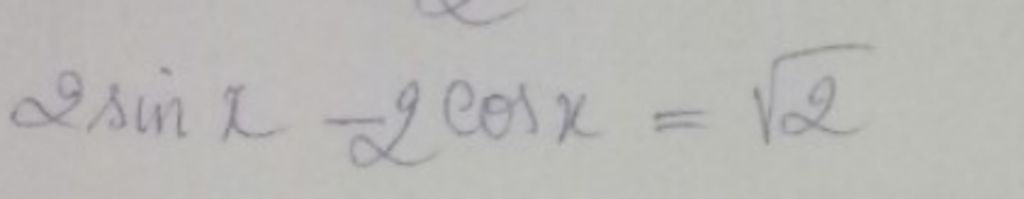 2 sin x - 2 cos x = √2